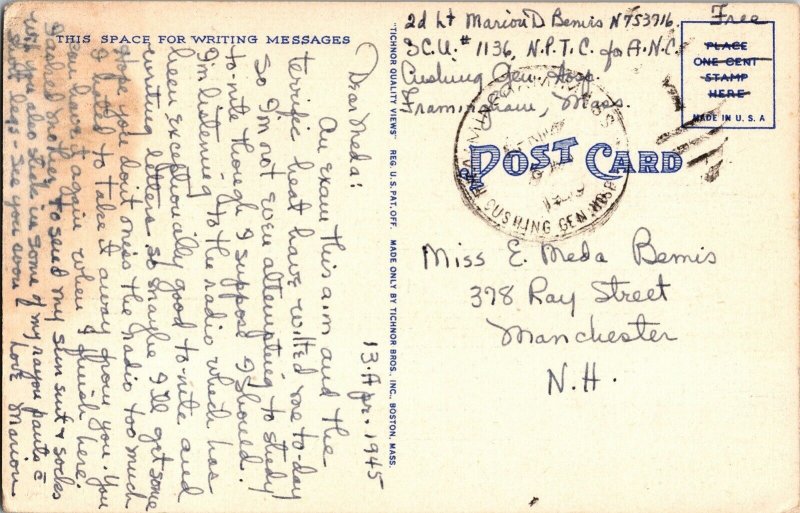 THIS SPACE FOR WRITING MESSAGES
13. Apr. 1945
Dear Meda:
An exam this a.m and the
terrific heat have wilted me to-day
So I'm not even attempting to study
to-nite though I suppose I should.
I'm listening to the radio which has
been exceptionally good to-nite and
writing letters so maybe I'll get some
Hope you don't miss the radio too much
I hated to take it away from you. You
can have it again when I finish here.
I asked mother to send my sun suit & socks
will you also stick in some of my rayon pants c̄
short legs. See you soon Love Marion
"TICHNOR QUALITY VIEWS" REG. U. S. PAT. OFF. MADE ONLY BY TICHNOR BROS., INC., BOSTON, MASS.
2d Lt Marion D Bemis N753716.
S.C.U. # 1136, N.P.T.C. for A.N.C.
Cushing Gen. Hosp.
Framingham, Mass.
Free
PLACE
ONE CENT
STAMP
HERE
MADE IN U. S. A
CUSHING GEN. HOSP.
POST CARD
Miss E. Meda Bemis
378 Ray Street
Manchester
N.H.